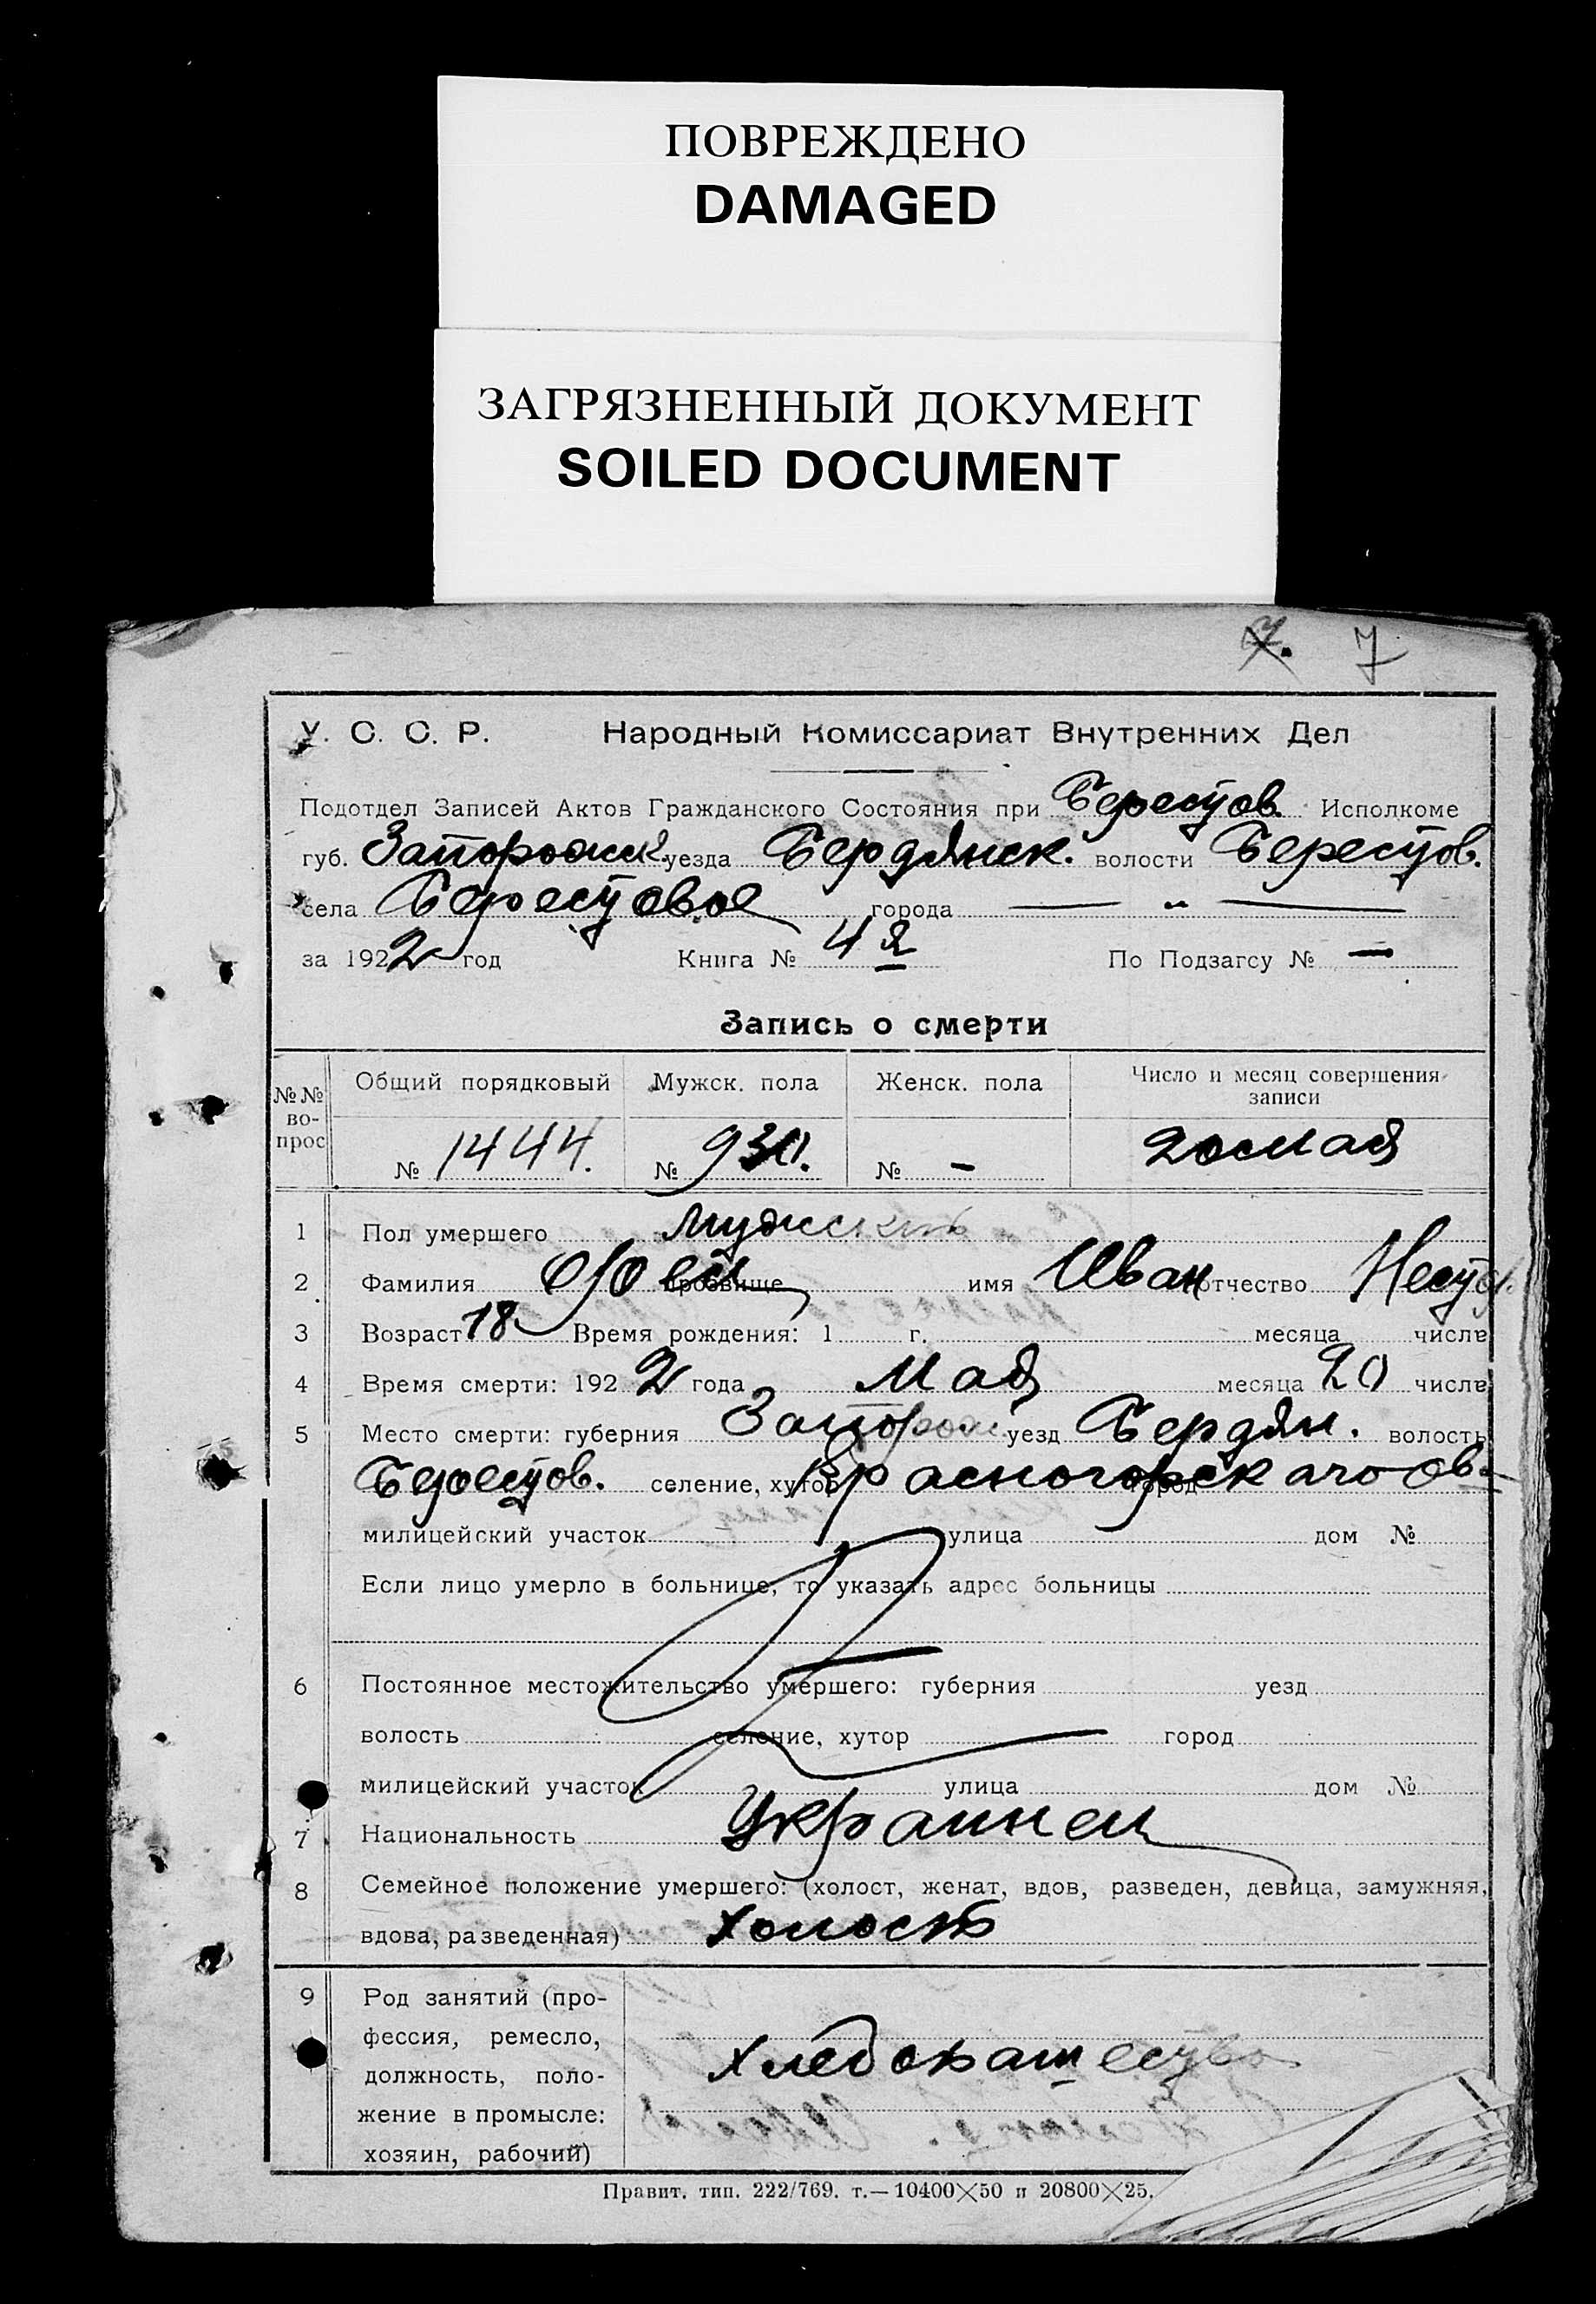 ПОВРЕЖДЕНО
DAMAGED
ЗАГРЯЗНЕННЫЙ ДОКУМЕНТ
SOILED DOCUMENT
7. 7
У. С. С. Р. Народный Комиссариат Внутренних Дел
Подотдел Записей Актов Гражданского Состояния при Берестов. Исполкоме
губ. Запорожск. уезда Бердянск. волости Берестов.
села Берестовое города — " —
за 1922 год Книга № 4я По Подзагсу № —
Запись о смерти
№№ вопрос Общий порядковый Мужск. пола Женск. пола Число и месяц совершения записи
№ 1444. № 930. № - 20 мая
1 Пол умершего мужской
2 Фамилия прозвище имя Иван отчество
3 Возраст 18 Время рождения: 1 г. месяца числа
4 Время смерти: 1922 года Мая месяца 20 числа
5 Место смерти: губерния Запорож уезд Бердян. волость
Берестов. селение, хутор город
милицейский участок улица дом №
Если лицо умерло в больнице, то указать адрес больницы
6 Постоянное местожительство умершего: губерния уезд
волость селение, хутор город
милицейский участок улица дом №
7 Национальность Украинец
8 Семейное положение умершего: (холост, женат, вдов, разведен, девица, замужняя,
вдова, разведенная) холост
9 Род занятий (про-
фессия, ремесло,
должность, поло- хлебопашество
жение в промысле:
хозяин, рабочий)
Правит. тип. 222/769. т.—10400×50 и 20800×25.